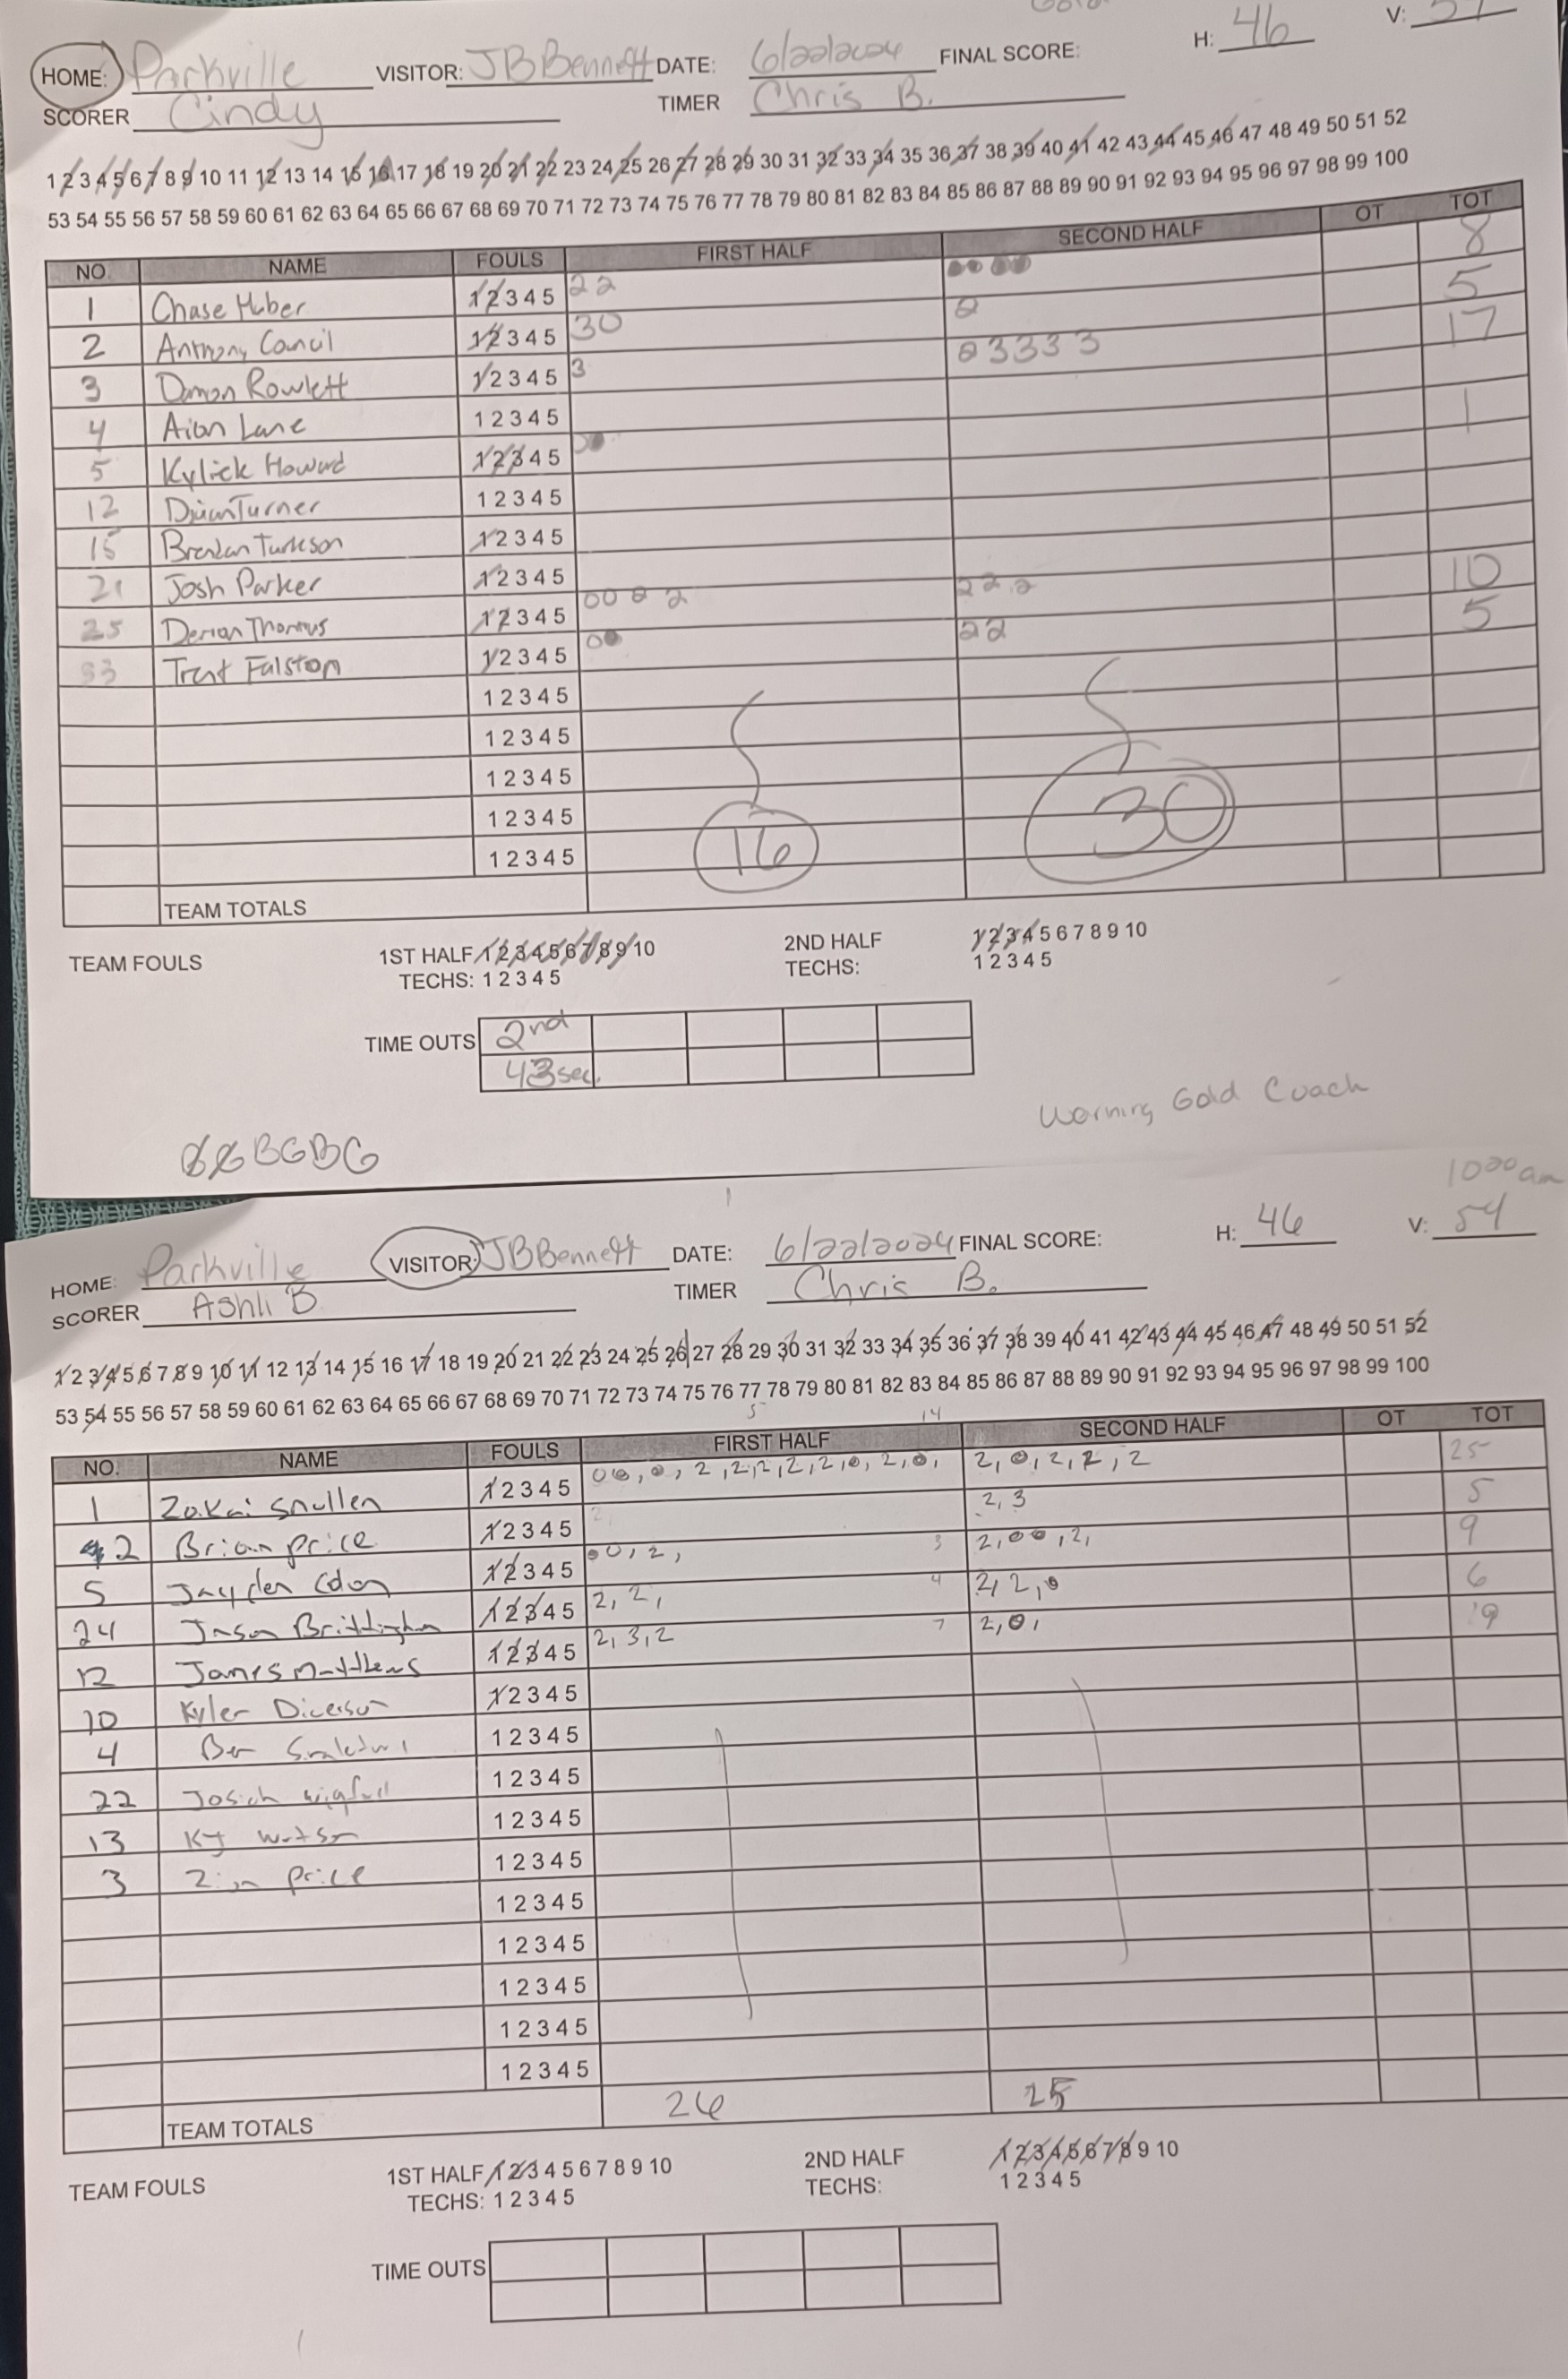 H: 46 V:
HOME: Parkville VISITOR: JBBennett DATE: 6/22/2024 FINAL SCORE:
SCORER Cindy TIMER Chris B.
1 2 3 4 5 6 7 8 9 10 11 12 13 14 15 16 17 18 19 20 21 22 23 24 25 26 27 28 29 30 31 32 33 34 35 36 37 38 39 40 41 42 43 44 45 46 47 48 49 50 51 52
53 54 55 56 57 58 59 60 61 62 63 64 65 66 67 68 69 70 71 72 73 74 75 76 77 78 79 80 81 82 83 84 85 86 87 88 89 90 91 92 93 94 95 96 97 98 99 100
NO. NAME FOULS FIRST HALF SECOND HALF OT TOT
1 Chase Huber 1 2 3 4 5 22 8
2 Anthony Council 1 2 3 4 5 30 2 5
3 Damon Rowlett 1 2 3 4 5 3 23333 17
4 Aion Lane 1 2 3 4 5
5 Kylick Howard 1 2 3 4 5 1
12 Turner 1 2 3 4 5
15 Brendan Turkson 1 2 3 4 5
21 Josh Parker 1 2 3 4 5
25 Derion Thomas 1 2 3 4 5 00 2 2 2 2 2 10
33 Trent Falston 1 2 3 4 5 0 22 5
1 2 3 4 5
1 2 3 4 5
1 2 3 4 5
1 2 3 4 5
1 2 3 4 5
16 30
TEAM TOTALS
TEAM FOULS 1ST HALF 1 2 3 4 5 6 7 8 9 10 2ND HALF 1 2 3 4 5 6 7 8 9 10
TECHS: 1 2 3 4 5 TECHS: 1 2 3 4 5
TIME OUTS 2nd
43sec.
Warning Gold Coach
BGBG
1000am
HOME: Parkville VISITOR: JBBennett DATE: 6/22/2024 FINAL SCORE: H: 46 V: 54
SCORER Ashli B TIMER Chris B.
1 2 3 4 5 6 7 8 9 10 11 12 13 14 15 16 17 18 19 20 21 22 23 24 25 26 27 28 29 30 31 32 33 34 35 36 37 38 39 40 41 42 43 44 45 46 47 48 49 50 51 52
53 54 55 56 57 58 59 60 61 62 63 64 65 66 67 68 69 70 71 72 73 74 75 76 77 78 79 80 81 82 83 84 85 86 87 88 89 90 91 92 93 94 95 96 97 98 99 100
5 14
NO. NAME FOULS FIRST HALF SECOND HALF OT TOT
1 Zakai Smullen 1 2 3 4 5 00, 0, 2, 2, 2, 2, 2, 0, 2, 0, 2, 0, 2, 2, 2 25
2 Brian Price 1 2 3 4 5 2, 3 5
5 Jayden Colon 1 2 3 4 5 00, 2, 3 2, 00, 2, 9
24 Jason Brittingham 1 2 3 4 5 2, 2, 4 2, 2, 0 6
12 James Matthews 1 2 3 4 5 2, 3, 2 7 2, 0, 9
10 Kyler Dicerson 1 2 3 4 5
4 Ben 1 2 3 4 5
22 Josiah 1 2 3 4 5
13 KJ Watson 1 2 3 4 5
3 Zion Price 1 2 3 4 5
1 2 3 4 5
1 2 3 4 5
1 2 3 4 5
1 2 3 4 5
1 2 3 4 5
TEAM TOTALS 26 25
TEAM FOULS 1ST HALF 1 2 3 4 5 6 7 8 9 10 2ND HALF 1 2 3 4 5 6 7 8 9 10
TECHS: 1 2 3 4 5 TECHS: 1 2 3 4 5
TIME OUTS